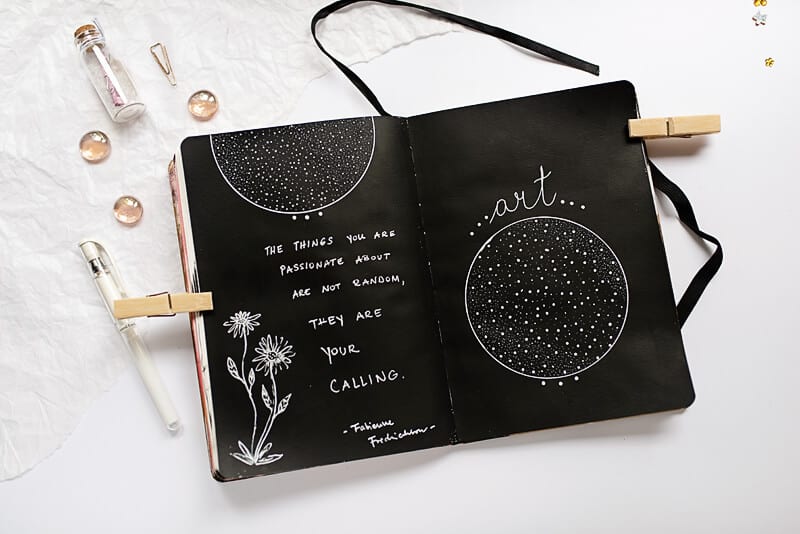 THE THINGS YOU ARE
PASSIONATE ABOUT
ARE NOT RANDOM,
THEY ARE
YOUR
CALLING.
- Fabienne
Fredrickson -
...art...